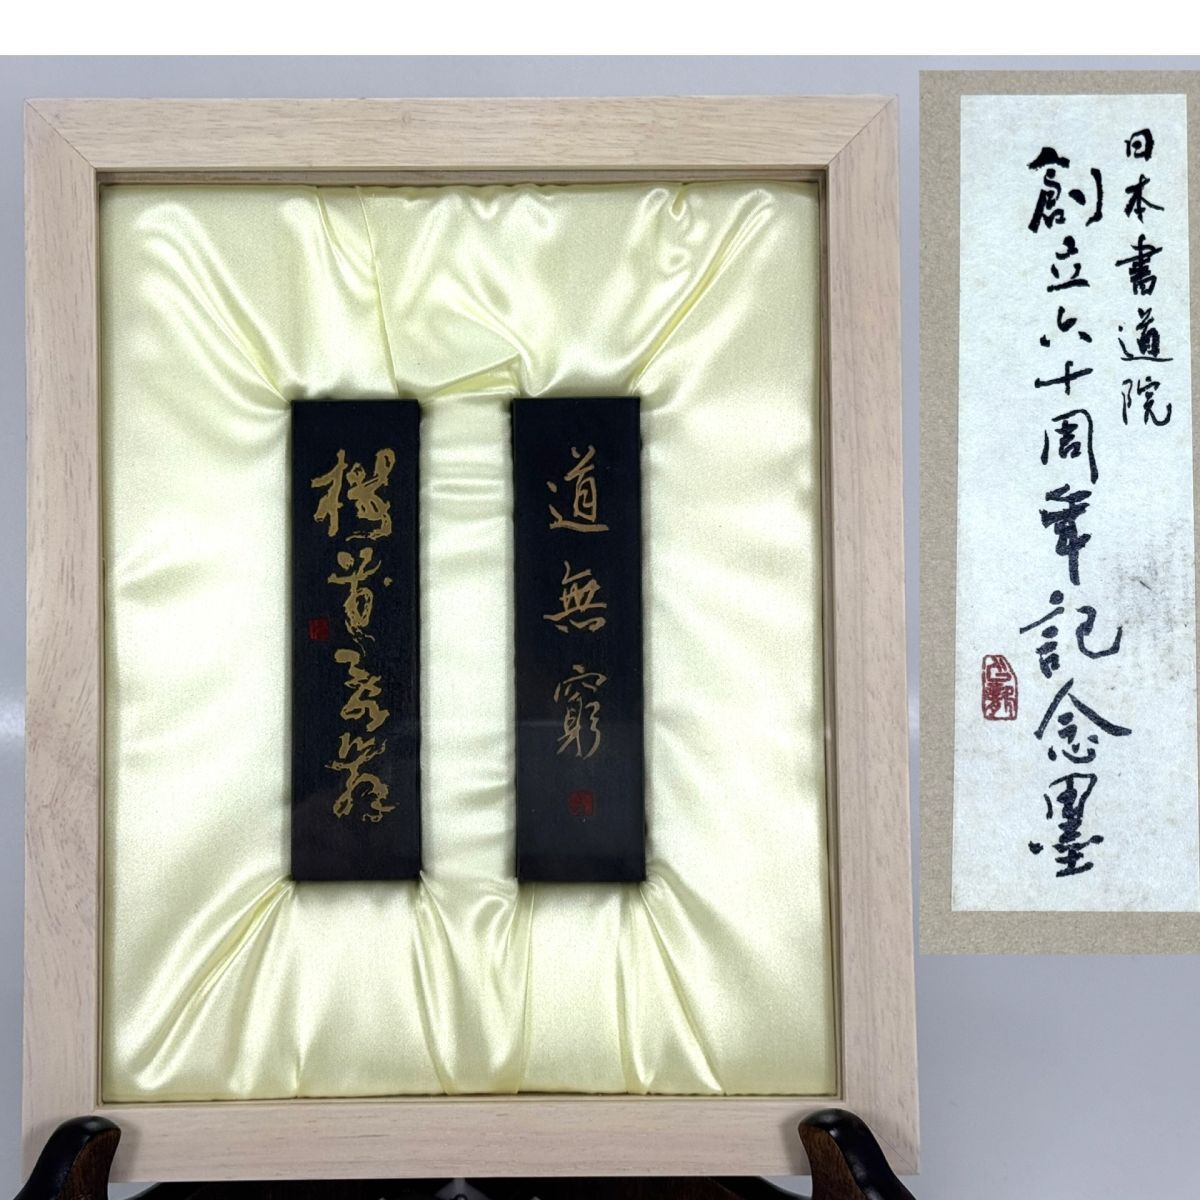 道無窮
日本書道院
創立六十周年記念墨